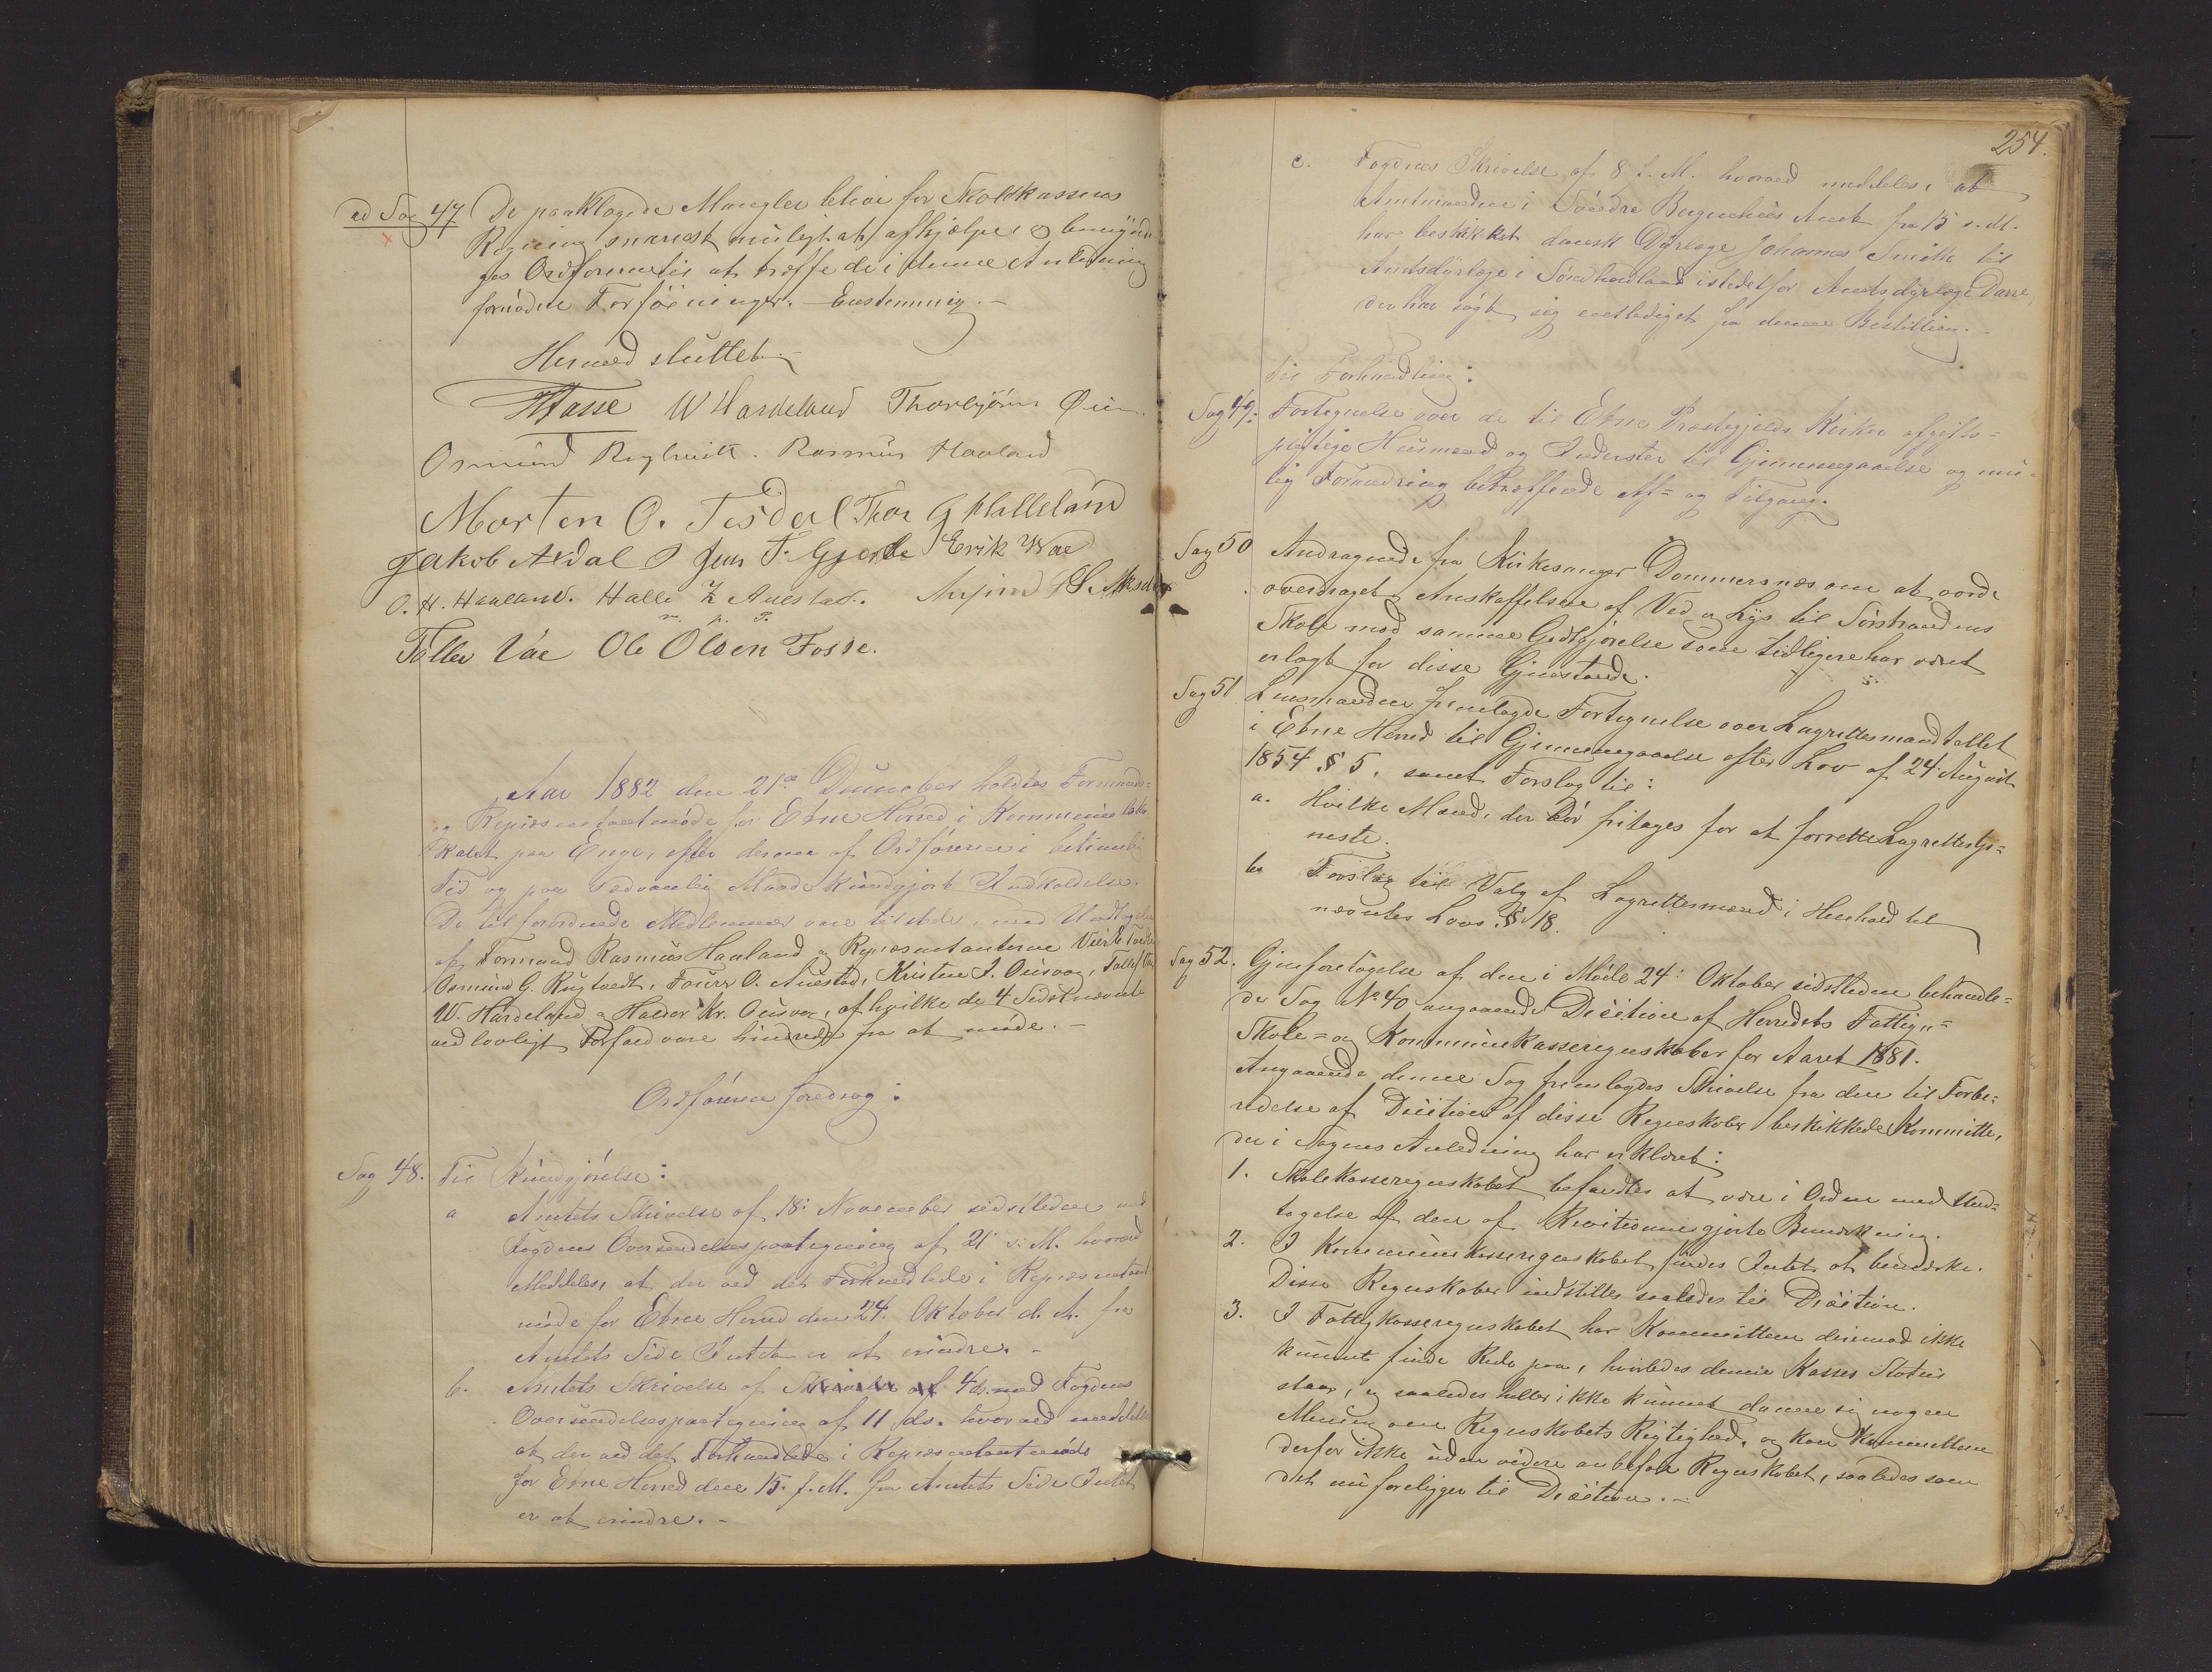 ad Sag 47 De paaklagede Mangler bliver for Skolekassens
Regning snarest muligt at afhjælpe og bemyndi-
ges Ordføreren til at træffe de i denne Anledning
fornødne Forføininger. Enstemmig.-
Hermed sluttet.
Hasse W Hardeland Thorbjörn Øien.
Osmund Rygtveit. Rasmus Havland
Morten O. Tesdal Thor G Halleland
Jakob Aldal Jens T. Gjerde Erik Wae
O. H. Haaland. Halle Z Auestad.
m. p. P.
Töller Vae Ole Olsen Fosse.
Aar 1882 den 21de December holdtes Formands-
og Repræsentantmøde for Etne Herred i Kommunelo-
kalet paa Enge, efter dertil af Ordføreren i betimelig
Tid og paa sædvanlig Maade kundgjort Indkaldelse.
De tilforordnede Medlemmer vare tilstede, med Undtagelse
af Formand Rasmus Havland og Repræsentanterne
Osmund G. Rugtvedt, O. Auestad, Kristen J. Ousvaag,
W. Hardeland og Haldor Kr. Ousvaag, af hvilke de 4 Sidstnævnte
ved lovligt Forfald vare hindrede fra at møde.-
Ordføreren foredrog:
Sag 48. Til Kundgjörelse:
a Amtets Skrivelse af 18: November sidstleden med
Fogdens Oversendelsespaategning af 21 s. M. hvorved
Meddeles, at der ved det Forhandlede i Repræsentant-
møde for Etne Herred den 24. Oktober d. A. fra
Amtets Side Intet er at erindre.-
b. Amtets Skrivelse af Skrivelse af 4 ds. med Fogdens
Oversendelsespaategning af 11 ds. hvorved meddeles
at der ved det Forhandlede i Repræsentantmøde
for Etne Herred den 15. f. M. fra Amtets Side Intet
er at erindre.-
254.
c. Fogdens Skrivelse af 8 d. M. hvorved meddeles, at
Amtmanden i Söndre Bergenhus Amt fra 15 s. M.
har beskikket dansk Dyrlæge Johannes Smith til
Amtsdyrlæge i Søndhordland istedetfor Amtsdyrlæge Darre,
der har søgt sig entlediget fra denne Bestilling.
Til Forhandling:
Sag 49: Fortegnelse over de til Etne Præstegjelds Kirker afgifts-
pligtige Husmænd og Inderster til Gjennemgaaelse og mu-
lig Forandring betræffende Af- og Tilgang.
Sag 50 Andragende fra Kirkesanger Dommersnes om at vorde
overdraget Anskaffelsen af Ved og Lys til Sørstrandens
Skole mod samme Godtgjørelse som tidligere har været
erlagt for disse Gjenstande.
Sag 51 Lensmanden fremlagde Fortegnelse over Lagrettesmandtallet
i Etne Herred til Gjennemgaaelse efter Lov af 24 August
1854 § 5, samt Forslag til:
a. Hvilke Mænd, der bör fritages for at forrette Lagrettestje-
neste.
b. Forslag til Valg af Lagrettesmænd i Henhold til
nævntes Lovs § 18.
Sag 52. Gjenforetagelse af den i Møde 24: Oktober sidstleden behandle-
de Sag No. 40 angaaende Decition af Herredets Fattig-
Skole- og Kommunekasseregnskaber for Aaret 1881.
Angaaende denne Sag fremlagdes Skrivelse fra den til Forbe-
redelse af Decition af disse Regnskaber beskikkede Kommitte,
der i Sagens Anledning har erklæret:
1. Skolekasseregnskabet befandtes at være i Orden med Und-
tagelse af den af Revisionen gjorte Bemærkning.
2. I Kommunekasseregnskabet findes Intet at bemærke.
Disse Regnskaber indstilles saaledes til Decition.
3. I Fattigkasseregnskabet har Kommitteen derimod ikke
kunnet finde Rede paa, hvorledes denne Kasses Status
staar, og saaledes heller ikke kunnet danne sig nogen
Mening om Regnskabets Rigtighed, og kan Kommitteen
derfor ikke uden videre anbefale Regnskabet, saaledes som
det nu foreligger til Decition.-